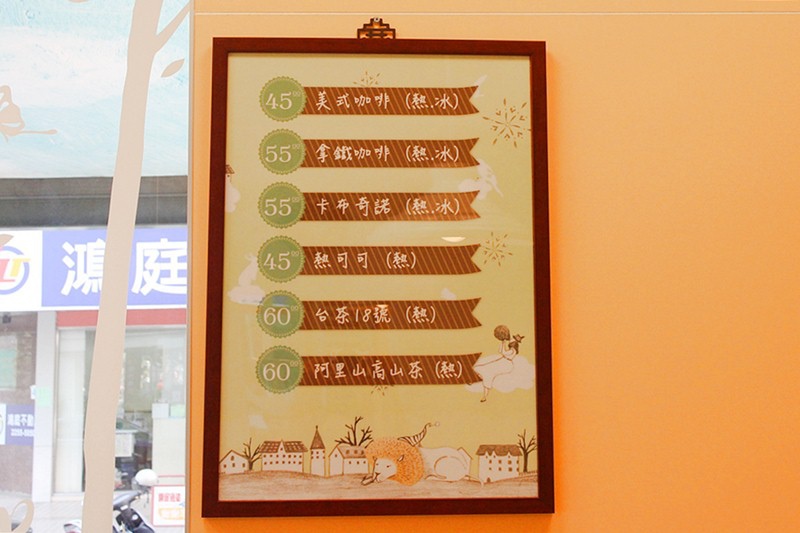 45 美式咖啡 (熱.冰)
55 拿鐵咖啡 (熱.冰)
55 卡布奇諾 (熱.冰)
45 熱可可 (熱)
60 台茶18號 (熱)
60 阿里山高山茶 (熱)
鴻庭
鴻庭不動